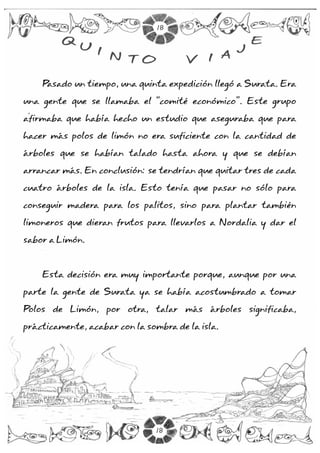 18
QUINTO VIAJE
Pasado un tiempo, una quinta expedición llegó a Surata. Era
una gente que se llamaba el "comité económico". Este grupo
afirmaba que había hecho un estudio que aseguraba que para
hacer más polos de limón no era suficiente con la cantidad de
árboles que se habían talado hasta ahora y que se debían
arrancar más. En conclusión: se tendrían que quitar tres de cada
cuatro árboles de la isla. Esto tenía que pasar no sólo para
conseguir madera para los palitos, sino para plantar también
limoneros que dieran frutos para llevarlos a Nordalia y dar el
sabor a Limón.
Esta decisión era muy importante porque, aunque por una
parte la gente de Surata ya se había acostumbrado a tomar
Polos de Limón, por otra, talar más árboles significaba,
prácticamente, acabar con la sombra de la isla.
18